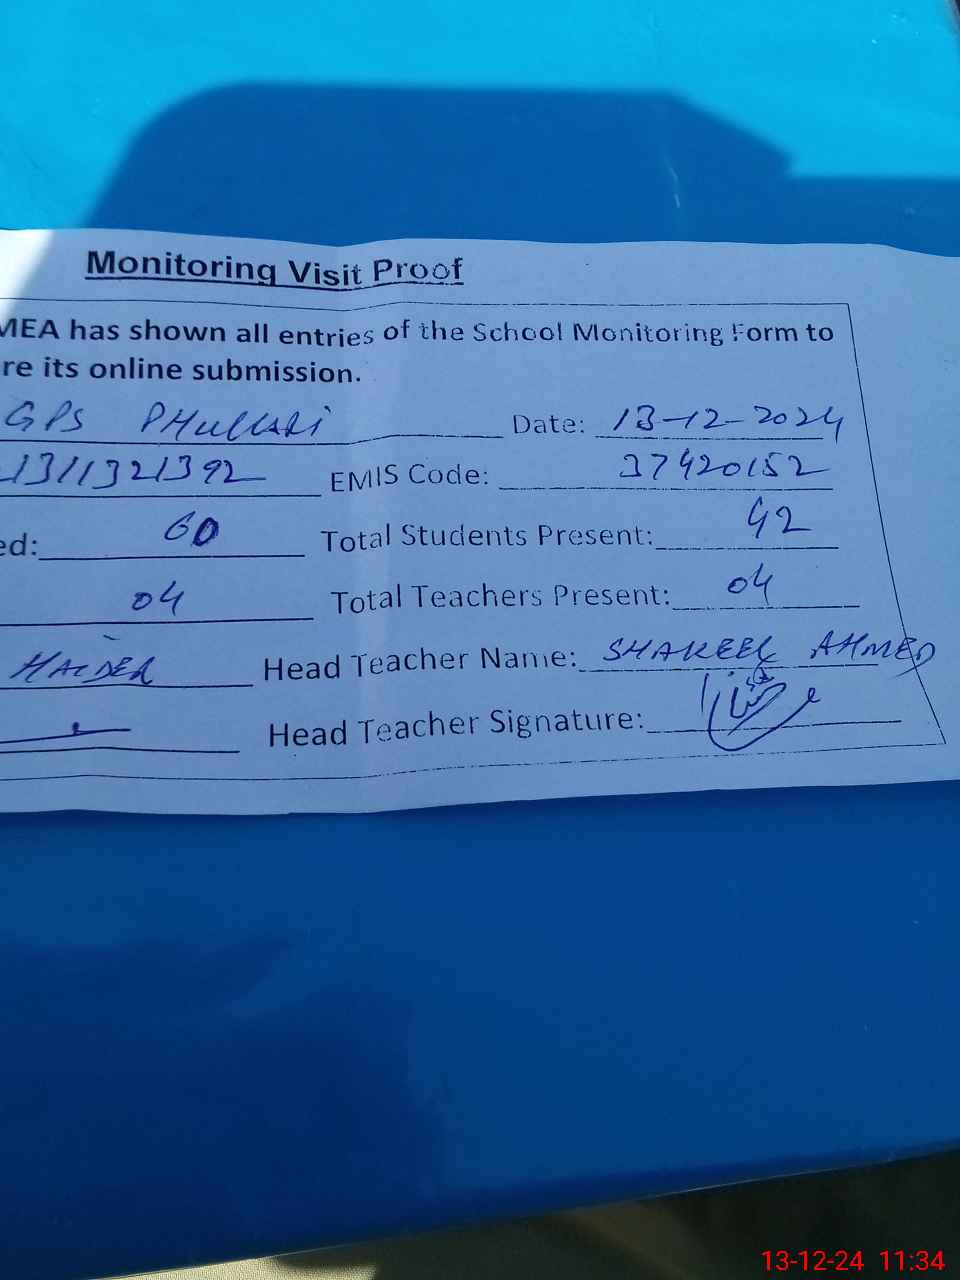 Monitoring Visit Proof
MEA has shown all entries of the School Monitoring Form to
re its online submission.
GPS PHULLARI Date: 13-12-2024
1311321392 EMIS Code: 37420152
ed: 60 Total Students Present: 42
04 Total Teachers Present: 04
HAIDER Head Teacher Name: SHAKEEL AHMED
Head Teacher Signature:
13-12-24 11:34